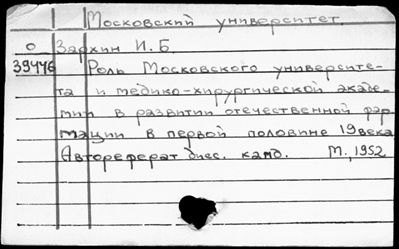 Московский университет.
О Зархин И.Б.
39446 Роль Московского университе-
та и медико-хирургической акаде-
мии в развитии отечественной фар
мации в первой половине 19 века
Автореферат дисс. канд. М., 1952